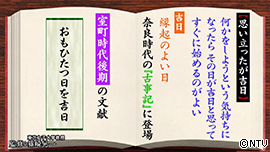 【思い立ったが吉日】
何かをしようという気持ちに
なったら その日が吉日と思って
すぐに始めるのがよい
吉日
縁起のよい日
奈良時代の「古事記」に登場
室町時代後期の文献
おもひたつ日を吉日
©NTV